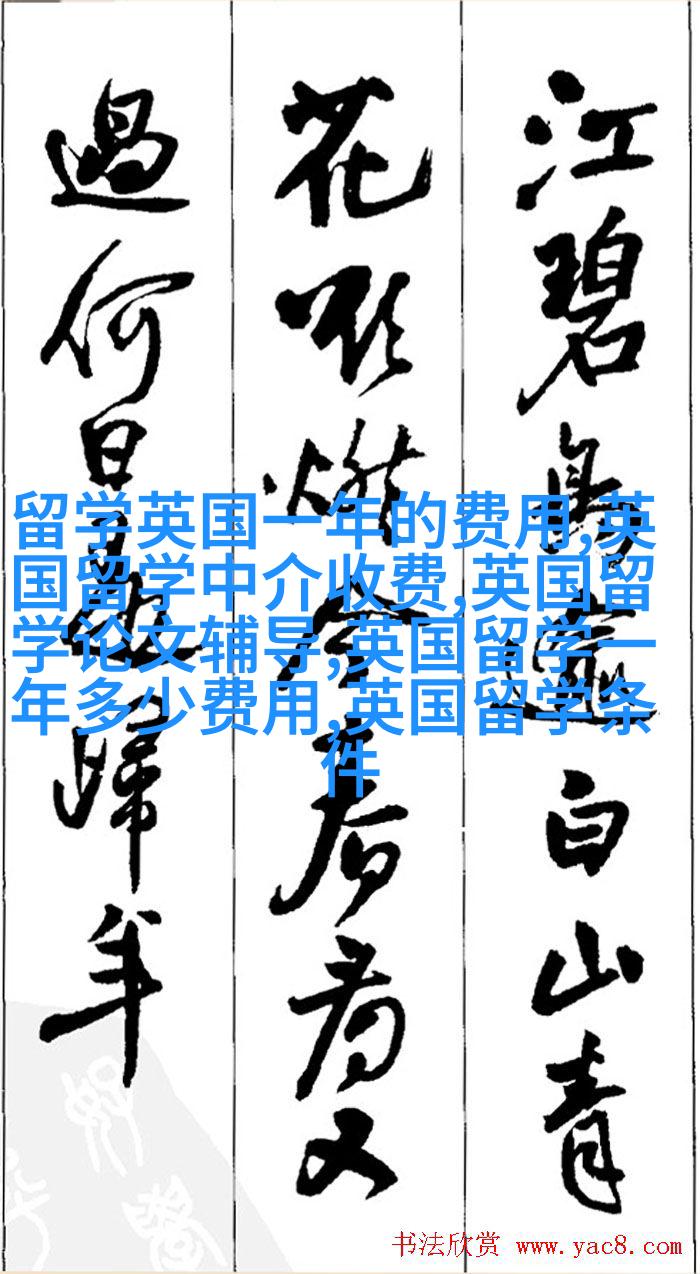 江碧鸟逾白山青
花欲燃今春看又
過何日是歸年
留学英国一年的费用,英
国留学中介收费,英国留
学论文辅导,英国留学一
年多少费用,英国留学条
件
书法欣赏 www.yac8.com